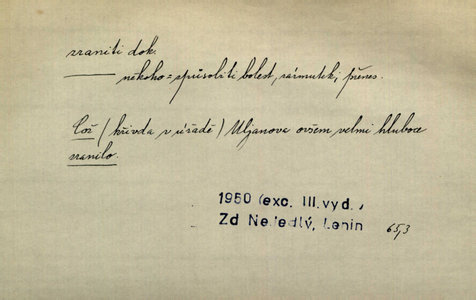 zraniti dok.
někoho = způsobiti bolest, zármutek; přenes.
Což (křivda v úřadě) Uljanova ovšem velmi hluboce
zranilo.
1950 (exc. III. vyd.)
Zd Nejedlý, Lenin 65,3